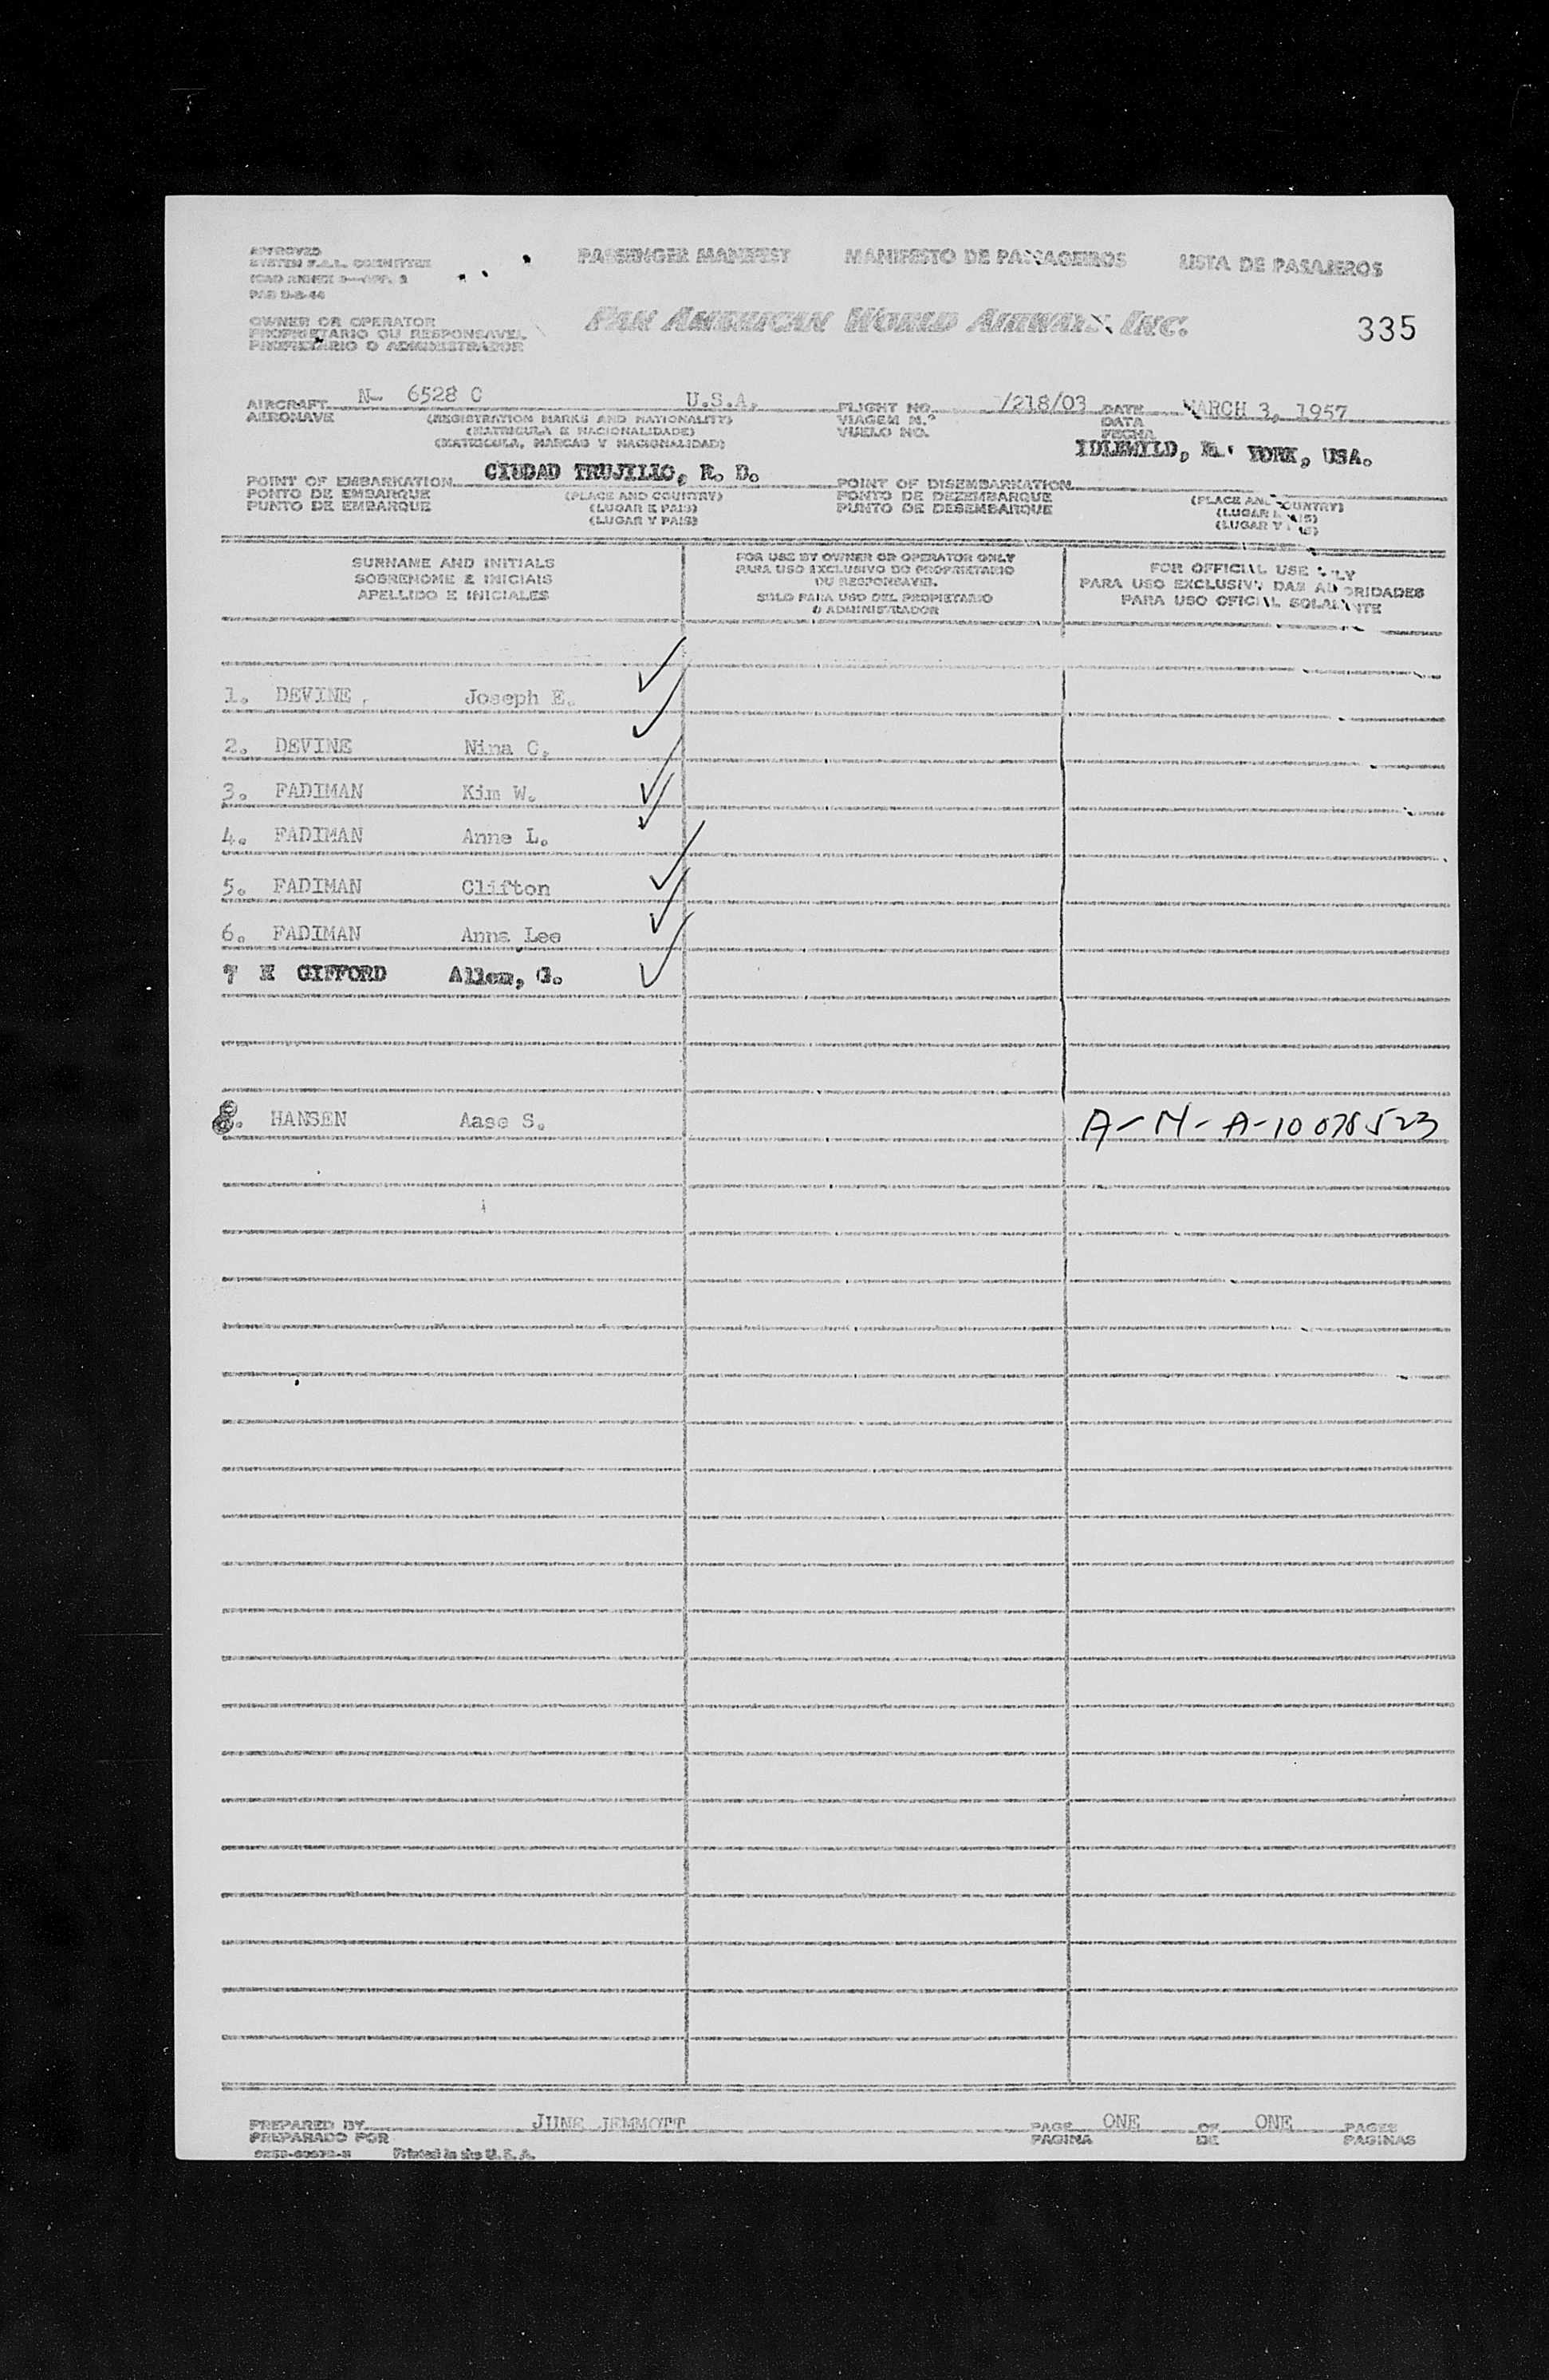 APPROVED
SYSTEM F.A.L. COMMITTEE
ICAO ANNEX 9—APP. 3
PASSENGER MANIFEST MANIFESTO DE PASSAGEIROS LISTA DE PASAJEROS
OWNER OR OPERATOR
PROPRIETARIO OU RESPONSAVEL
PROPIETARIO O ADMINISTRADOR
PAN AMERICAN WORLD AIRWAYS, INC.
335
AIRCRAFT N- 6528 C U.S.A. FLIGHT NO. /218/03 DATE MARCH 3, 1957
AERONAVE (REGISTRATION MARKS AND NATIONALITY) VIAGEM N.º DATA
(MATRICULA E NACIONALIDADE) VUELO NO. FECHA
(MATRICULA, MARCAS Y NACIONALIDAD)
IDLEWILD, N. YORK, USA.
POINT OF EMBARKATION CIUDAD TRUJILLO, R. D. POINT OF DISEMBARKATION
PONTO DE EMBARQUE (PLACE AND COUNTRY) PONTO DE DEZEMBARQUE (PLACE AND COUNTRY)
PUNTO DE EMBARQUE (LUGAR E PAIS) PUNTO DE DESEMBARQUE (LUGAR E PAIS)
(LUGAR Y PAIS) (LUGAR Y PAIS)
SURNAME AND INITIALS
SOBRENOME E INICIAIS
APELLIDO E INICIALES
FOR USE BY OWNER OR OPERATOR ONLY
PARA USO EXCLUSIVO DO PROPRIETARIO
OU RESPONSAVEL
SOLO PARA USO DEL PROPIETARIO
O ADMINISTRADOR
FOR OFFICIAL USE ONLY
PARA USO EXCLUSIVO DAS AUTORIDADES
PARA USO OFICIAL SOLAMENTE
1. DEVINE, Joseph E.
2. DEVINE Nina C.
3. FADIMAN Kim W.
4. FADIMAN Anne L.
5. FADIMAN Clifton
6. FADIMAN Anna Lee
7 X GIFFORD Allen, G.
8. HANSEN Aase S. A-N-A-10 078 523
PREPARED BY JUNE JEMMOTT PAGE ONE OF ONE PAGES
PREPARADO POR PAGINA DE PAGINAS
Printed in the U. S. A.